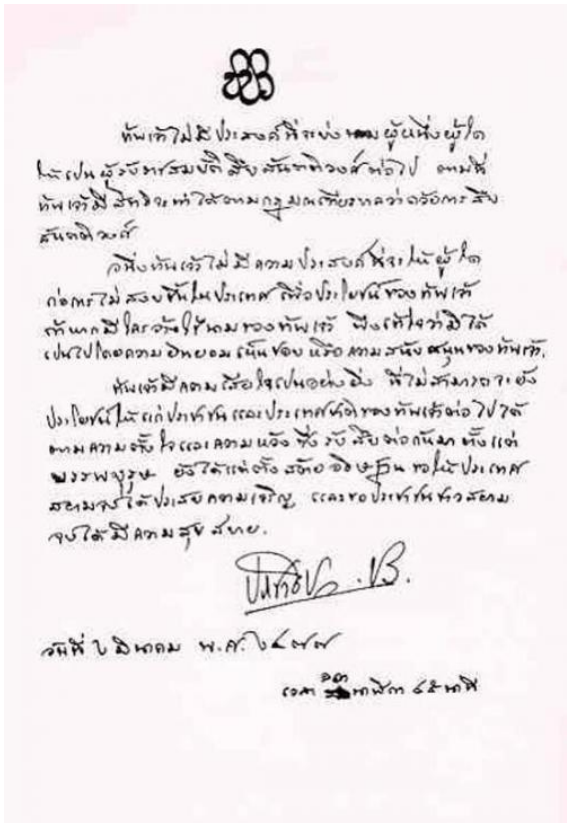 ข้าพเจ้าไม่มีประสงค์ที่จะบ่งนามผู้หนึ่งผู้ใด
ให้เป็นผู้รับราชสมบัติสืบสันตติวงศ์ต่อไป ตามที่
ข้าพเจ้ามีสิทธิจะทำได้ตามกฎมณเฑียรบาลว่าด้วยการสืบ
สันตติวงศ์
อนึ่งข้าพเจ้าไม่มีความประสงค์ที่จะให้ผู้ใด
ก่อการไม่สงบขึ้นในประเทศ เพื่อประโยชน์ของข้าพเจ้า
ถ้าหากมีใครอ้างใช้นามของข้าพเจ้า พึงเข้าใจว่ามิได้
เป็นไปโดยความยินยอมเห็นชอบ หรือความสนับสนุนของข้าพเจ้า.
ข้าพเจ้ามีความเสียใจเป็นอย่างยิ่ง ที่ไม่สามารถจะยัง
ประโยชน์ให้แก่ประชาชนและประเทศชาติของข้าพเจ้าต่อไปได้
ตามความตั้งใจและความหวัง ซึ่งรับสืบต่อกันมาตั้งแต่
บรรพบุรุษ ยังได้แต่ตั้งสัตย์อธิษฐาน ขอให้ประเทศ
สยามจงได้ประสบความเจริญ และขอประชาชนชาวสยาม
จงได้มีความสุขสบาย.
ประชาธิปก . ปร.
วันที่ ๒ มีนาคม พ.ศ. ๒๔๗๗
เวลา นาฬิกา ๔๕ นาที